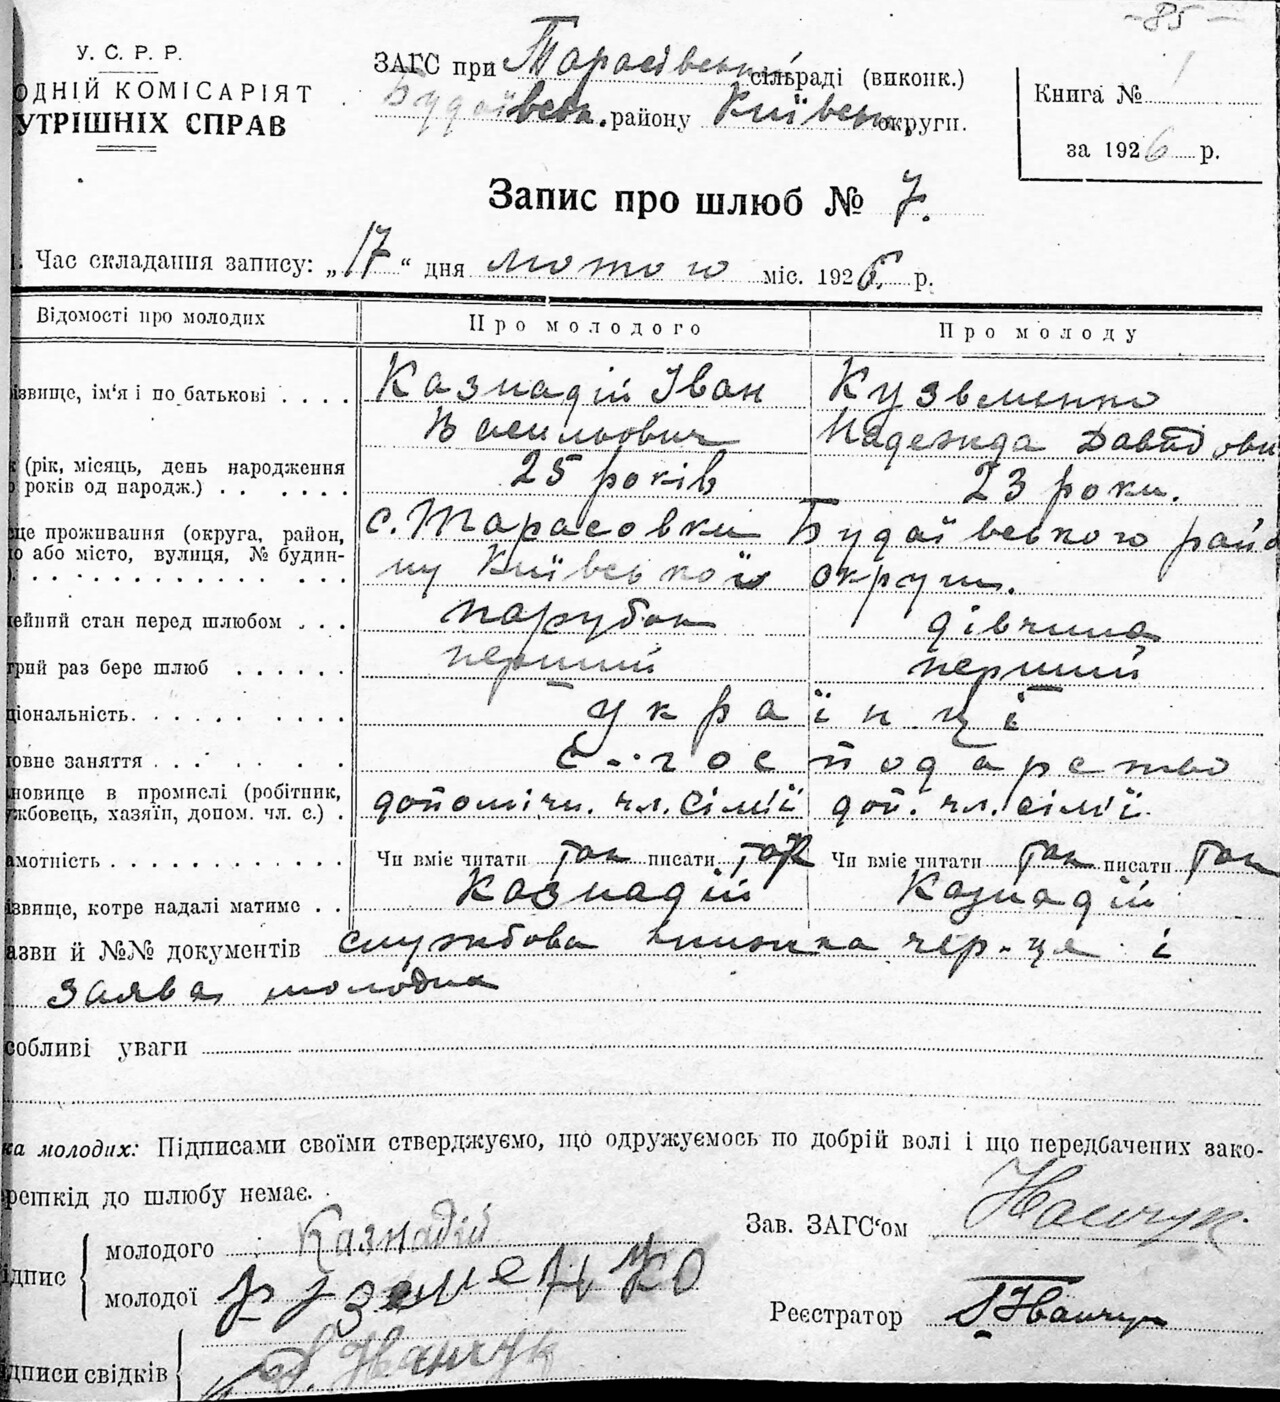 - 85 -
У. С. Р. Р.
ОДНІЙ КОМІСАРІЯТ
УТРІШНІХ СПРАВ
ЗАГС при Тарасівській сільраді (виконк.)
Будаївськ. району Київськ. округи.
Книга № 1
за 1926 р.
Запис про шлюб № 7.
. Час складання запису: „17“ дня лютого міс. 1926 р.
Відомості про молодих Про молодого Про молоду
ізвище, ім'я і по батькові . . . . Казнадій Іван Кузьменко
Васильович Надежда Давидовн
(рік, місяць, день народження
років од народж.) . . . . . . 25 років 23 роки.
це проживання (округа, район, с. Тарасовки Будаївського райо
о або місто, вулиця, № будин-
ну Київської округи.
ейний стан перед шлюбом . . . парубок дівчина
трий раз бере шлюб . . . . . . перший перший
ціональність. . . . . . . . . українці
овне заняття . . . . . . . с.-господарство
новище в промислі (робітник,
жбовець, хазяїн, допом. чл. с.) . допомічн. чл. сім'ї доп. чл. сім'ї
амотність . . . . . . . . . . . Чи вміє читати так писати так Чи вміє читати так писати так
ізвище, котре надалі матиме . . Казнадій Казнадій
азви й №№ документів службова книжка чер-ця і
заява молодих
собливі уваги
ка молодих: Підписами своїми стверджуємо, що одружуємось по добрій волі і що передбачених зако-
решкід до шлюбу немає.
ідпис
молодого Казнадій
молодої Куземенко
Зав. ЗАГС'ом
Реєстратор
ідписи свідків